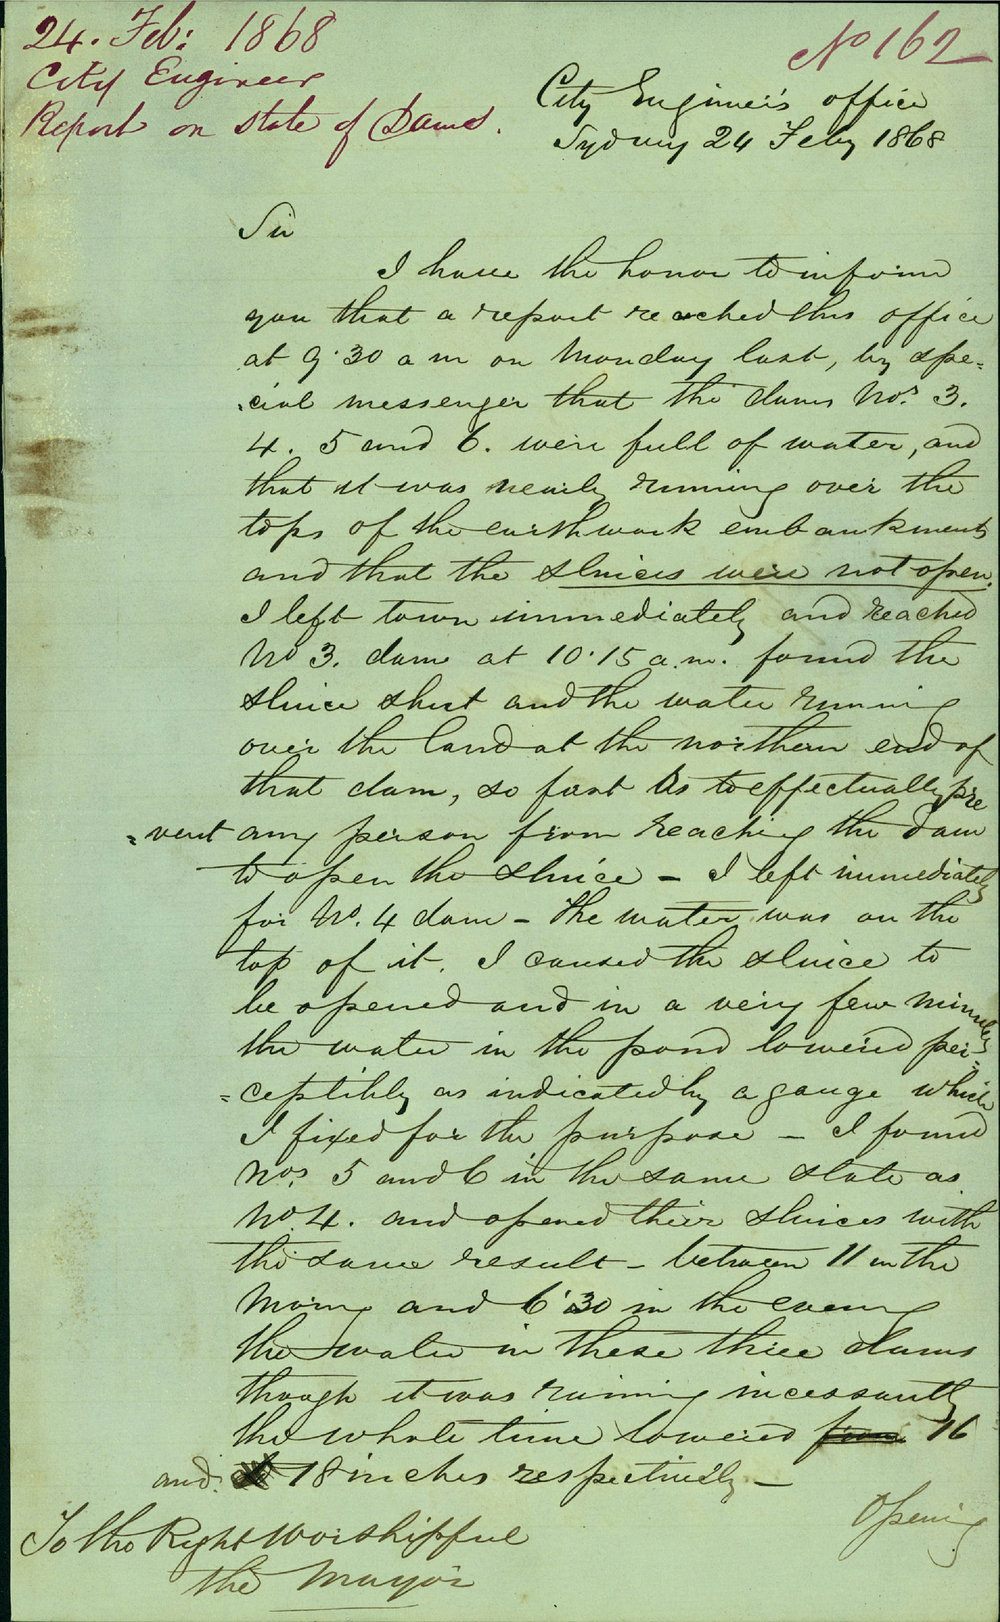 24. Feb: 1868
City Engineer
Report on state of Dams.
No 162
City Engineer's office
Sydney 24 Feby 1868
Sir
I have the honor to inform
you that a report reached this office
at 9.30 a m on Monday last, by spe=
=cial messenger that the dams Nos. 3.
4. 5 and 6. were full of water, and
that it was nearly running over the
tops of the earthwork embankments
and that the sluices were not open.
I left town immediately and reached
No 3. dam at 10.15 a.m. found the
sluice shut and the water running
over the land at the northern end of
that dam, so fast as to effectually pre
=vent any person from reaching the dam
to open the sluice – I left immediately
for No. 4 dam – the water was on the
top of it. I caused the sluice to
be opened and in a very few minutes
the water in the pond lowered per=
=ceptibly as indicated by a gauge which
I fixed for the purpose – I found
Nos. 5 and 6 in the same state as
No 4. and opened their sluices with
the same result – between 11 in the
Morng and 6.30 in the evening
the water in these three dams
though it was raining incessantly
the whole time lowered from 16
and 18 inches respectively –
Opening
To the Right Worshipful
the Mayor